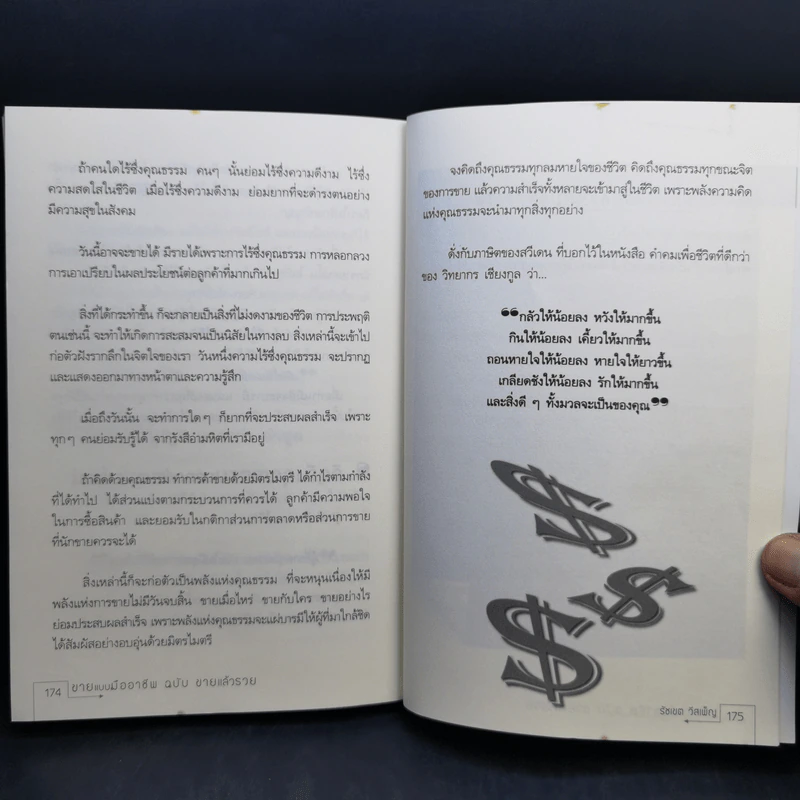 ถ้าคนใดไร้ซึ่งคุณธรรม คนๆ นั้นย่อมไร้ซึ่งความดีงาม ไร้ซึ่ง
ความสดใสในชีวิต เมื่อไร้ซึ่งความดีงาม ย่อมยากที่จะดำรงตนอย่าง
มีความสุขในสังคม
วันนี้อาจจะขายได้ มีรายได้เพราะการไร้ซึ่งคุณธรรม การหลอกลวง
การเอาเปรียบในผลประโยชน์ต่อลูกค้าที่มากเกินไป
สิ่งที่ได้กระทำขึ้น ก็จะกลายเป็นสิ่งที่ไม่งดงามของชีวิต การประพฤติ
ตนเช่นนี้ จะทำให้เกิดการสะสมจนเป็นนิสัยในทางลบ สิ่งเหล่านี้จะเข้าไป
ก่อตัวฝังรากลึกในจิตใจของเรา วันหนึ่งความไร้ซึ่งคุณธรรม จะปรากฏ
และแสดงออกมาทางหน้าตาและความรู้สึก
เมื่อถึงวันนั้น จะทำการใดๆ ก็ยากที่จะประสบผลสำเร็จ เพราะ
ทุกๆ คนย่อมรับรู้ได้ จากรังสีอำมหิตที่เรามีอยู่
ถ้าคิดด้วยคุณธรรม ทำการค้าขายด้วยมิตรไมตรี ได้กำไรตามกำลัง
ที่ได้ทำไป ได้ส่วนแบ่งตามกระบวนการที่ควรได้ ลูกค้ามีความพอใจ
ในการซื้อสินค้า และยอมรับในกติกาส่วนการตลาดหรือส่วนการขาย
ที่นักขายควรจะได้
สิ่งเหล่านี้ก็จะก่อตัวเป็นพลังแห่งคุณธรรม ที่จะหนุนเนื่องให้มี
พลังแห่งการขายไม่มีวันจบสิ้น ขายเมื่อไหร่ ขายกับใคร ขายอย่างไร
ย่อมประสบผลสำเร็จ เพราะพลังแห่งคุณธรรมจะแผ่บารมีให้ผู้ที่มาใกล้ชิด
ได้สัมผัสอย่างอบอุ่นด้วยมิตรไมตรี
174 ขายแบบมืออาชีพ ฉบับ ขายแล้วรวย
จงคิดถึงคุณธรรมทุกลมหายใจของชีวิต คิดถึงคุณธรรมทุกขณะจิต
ของการขาย แล้วความสำเร็จทั้งหลายจะเข้ามาสู่ในชีวิต เพราะพลังความคิด
แห่งคุณธรรมจะนำมาทุกสิ่งทุกอย่าง
ดั่งกับภาษิตของสวีเดน ที่บอกไว้ในหนังสือ คำคมเพื่อชีวิตที่ดีกว่า
ของ วิทยากร เชียงกูล ว่า...
“กลัวให้น้อยลง หวังให้มากขึ้น
กินให้น้อยลง เคี้ยวให้มากขึ้น
ถอนหายใจให้น้อยลง หายใจให้ยาวขึ้น
เกลียดชังให้น้อยลง รักให้มากขึ้น
และสิ่งดี ๆ ทั้งมวลจะเป็นของคุณ”
$
$
$
รัชเขต วีสเพ็ญ 175